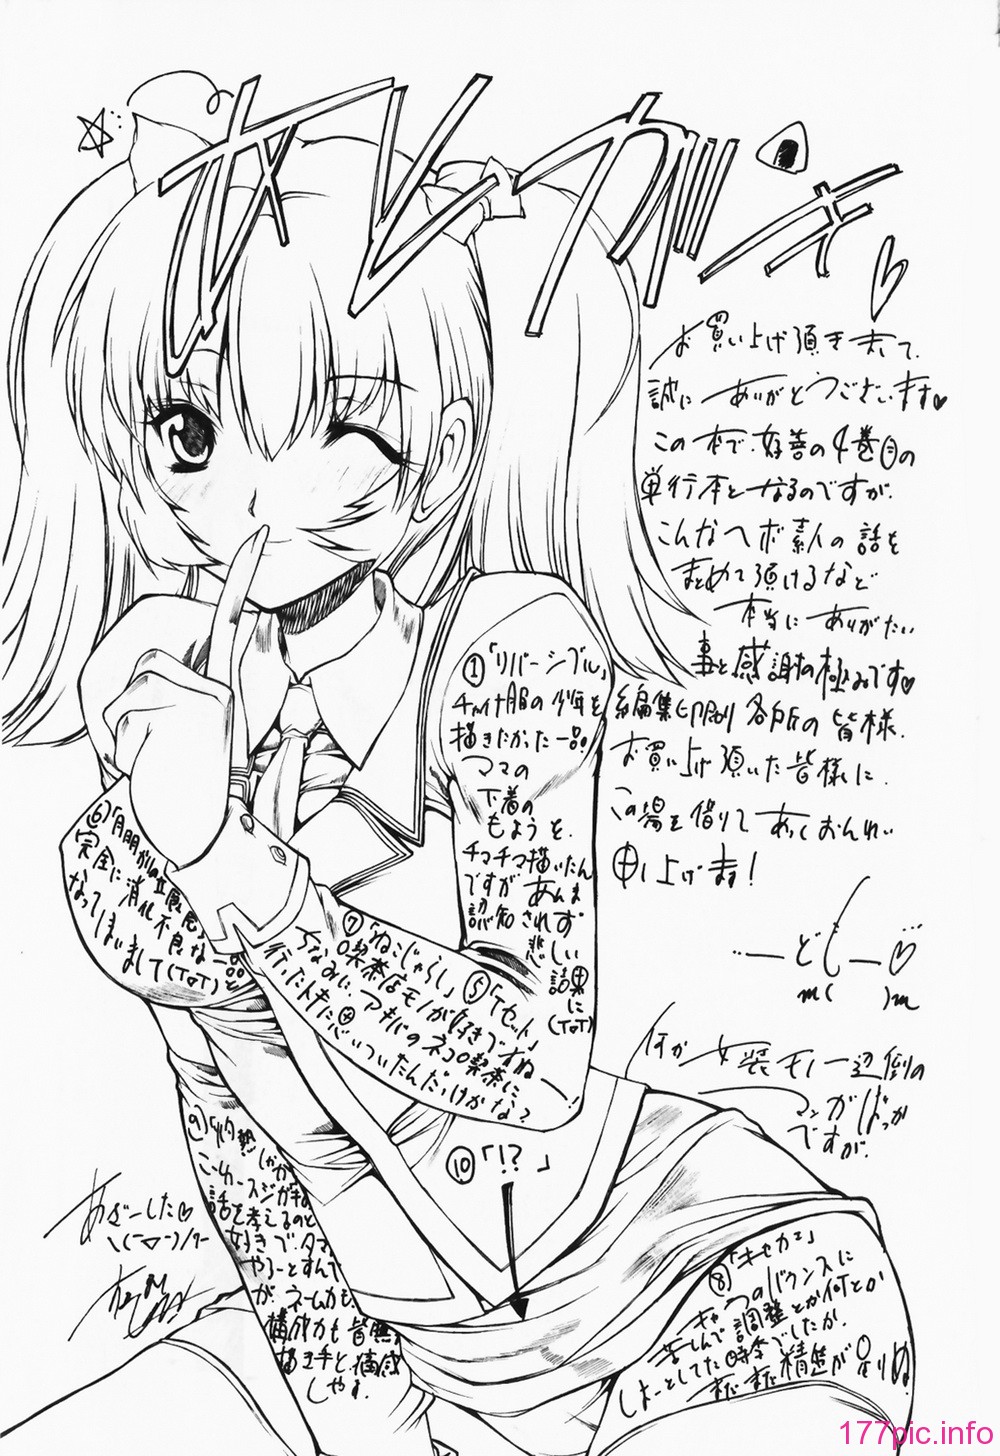 オレガキ
お買い上げ頂きまして、
誠にありがとうございます♥
この本で、好善の4巻目の
単行本となるのですが、
こんなヘボ素人の話を
まとめて頂けるなど
本当にありがたい
事と感謝の極みです♥
編集 印刷 各所の皆様、
お買い上げ頂いた皆様に、
この場を借りて あつくおんれい
申し上げます!
…ーどじー♡
m( )m
何か女装モノ一辺倒の
マンガばっか
ですが、
①「リバーシブル」
チャイナ服の少年を
描きたかった一品!
ママの
下着の
もようを、
チマチマ描いたん
ですがあんま
認知されず
悲しい
結果に
(TロT)
⑤「Tセット」
⑥
完全に消化不良な一品と
なってしまいまして(TロT)
⑦「ねこじゃらし」
喫茶店モノが好きでねー!
ちなみに、アキバのネコ喫茶に
行ったトキに思いついたんだっけかな?
⑧「キャカエ」
キャラのバウンスに
苦しんで調整とか何とか
しよーとしてた時分でしたか、
まだまだ精進が足りぬ
⑨「灼熱
話を考えるのと
好きで、タマ
やろーとすんで
が、ネームカも、
構成力も皆無
描き手と、痛感
しやす。
⑩「!?」
あざーした♥
\(￣▽￣)/
177pic.info